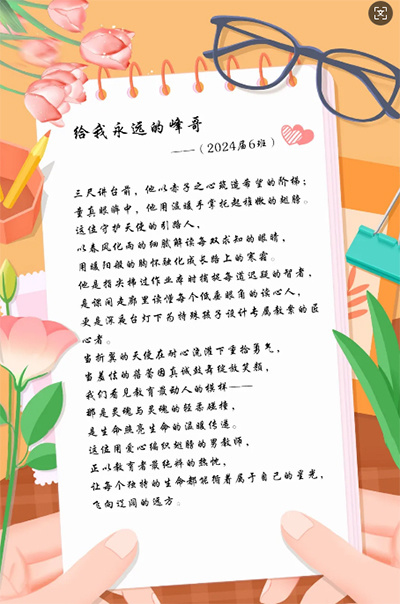 给我永远的峰哥
——（2024届6班）
三尺讲台前，他以赤子之心筑造希望的阶梯；
童真眼眸中，他用温暖手掌托起稚嫩的翅膀。
这位守护天使的引路人，
以春风化雨的细腻解读每双求知的眼睛，
用暖阳般的胸怀融化成长路上的寒霜。
他是指尖拂过作业本时捕捉每道迟疑的智者，
是课间走廊里读懂每个低垂眼角的读心人，
更是深夜台灯下为特殊孩子设计专属教案的匠
心者。
当折翼的天使在耐心浇灌下重拾勇气，
当羞怯的蓓蕾因真诚鼓舞绽放笑颜，
我们看见教育最动人的模样——
那是灵魂与灵魂的轻柔碰撞，
是生命照亮生命的温暖传递。
这位用爱心编织翅膀的男教师，
正以教育者最纯粹的热忱，
让每个独特的生命都能循着属于自己的星光，
飞向辽阔的远方。